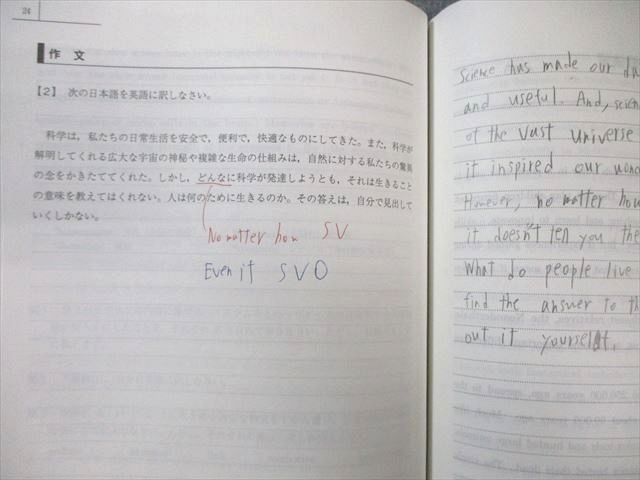 24
作 文
【2】 次の日本語を英語に訳しなさい。
科学は，私たちの日常生活を安全で，便利で，快適なものにしてきた。また，科学が
解明してくれる広大な宇宙の神秘や複雑な生命の仕組みは，自然に対する私たちの驚異
の念をかきたててくれた。しかし，どんなに科学が発達しようとも，それは生きること
の意味を教えてはくれない。人は何のために生きるのか。その答えは，自分で見出して
いくしかない。
No matter how SV
Even if SVO
Science has made our da
and useful. And, scien
of the vast universe
it inspired our won
However, no matter how
it doesn't tell you the
What do people live
find the answer to th
out it yourself.